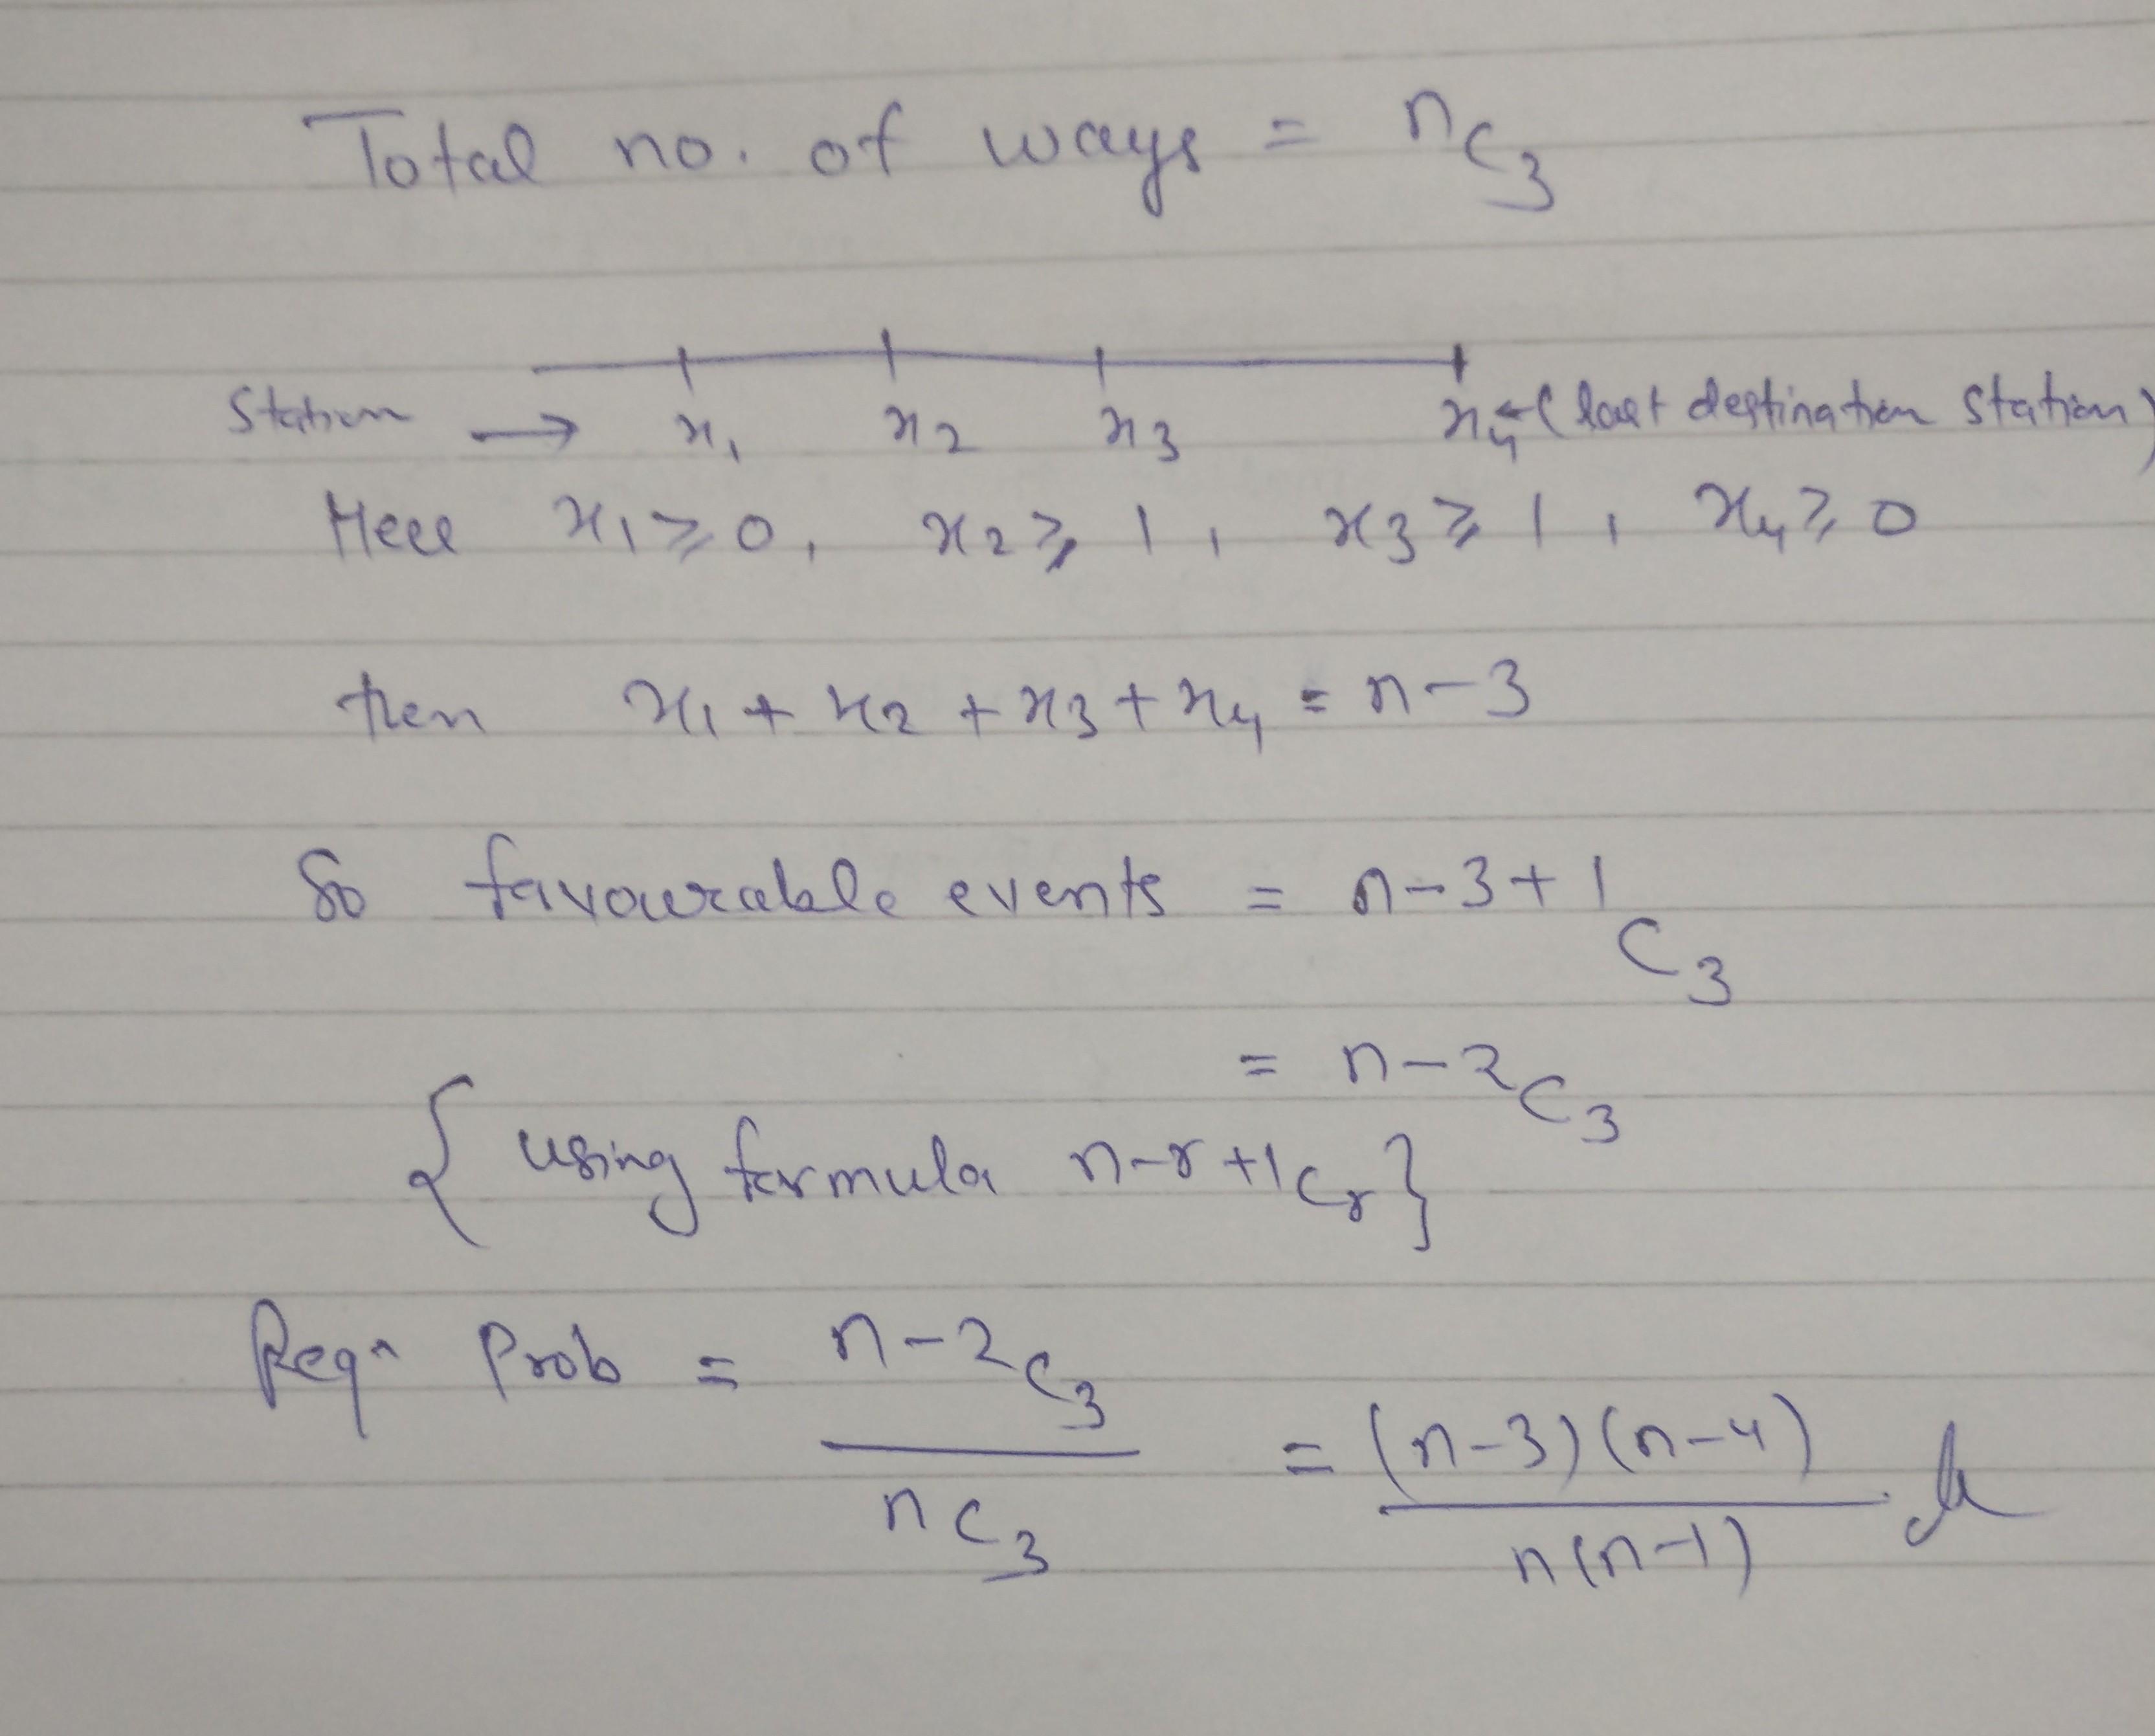 Total no. of ways = nC3
Station → x1 x2 x3 x4 ← (last destination station)
Here x1 ≥ 0, x2 ≥ 1, x3 ≥ 1, x4 ≥ 0
then x1 + x2 + x3 + x4 = n-3
So favourable events = n-3+1C3
= n-2C3
{ using formula n-r+1Cr }
Reqn Prob = n-2C3 / nC3 = (n-3)(n-4) / n(n-1)